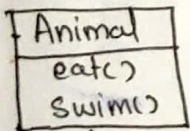 Animal
eat()
swim()